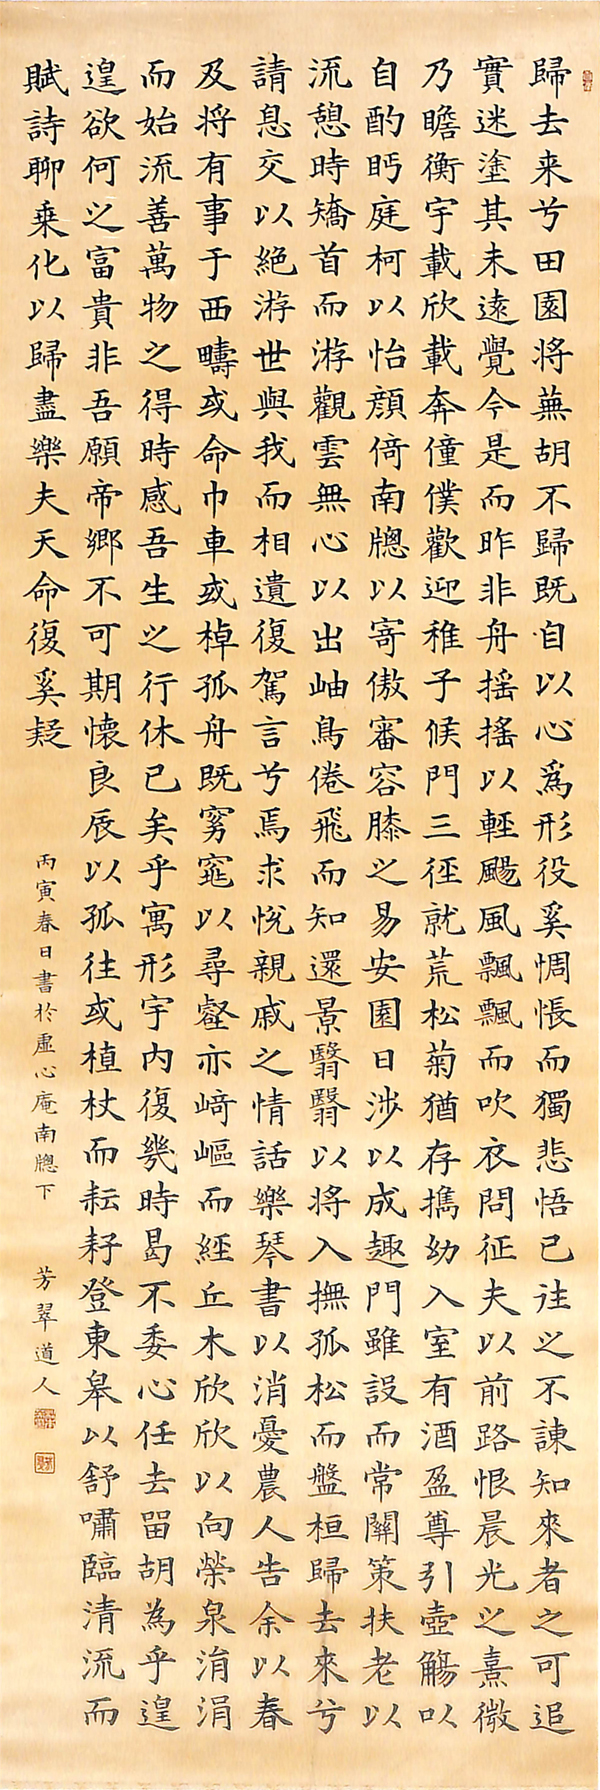 歸去来兮田園将蕪胡不歸既自以心爲形役奚惆悵而獨悲悟已往之不諫知來者之可追
實迷塗其未遠覺今是而昨非舟揺揺以輕颺風飄飄而吹衣問征夫以前路恨晨光之熹微
乃瞻衡宇載欣載奔僮僕歡迎稚子候門三徑就荒松菊猶存攜幼入室有酒盈尊引壺觴以
自酌眄庭柯以怡顔倚南牎以寄傲審容膝之易安園日涉以成趣門雖設而常關策扶老以
流憩時矯首而游觀雲無心以出岫鳥倦飛而知還景翳翳以将入撫孤松而盤桓歸去來兮
請息交以絶游世與我而相遺復駕言兮焉求悅親戚之情話樂琴書以消憂農人告余以春
及将有事于西疇或命巾車或棹孤舟既窈窕以尋壑亦崎嶇而經丘木欣欣以向榮泉涓涓
而始流善萬物之得時感吾生之行休已矣乎寓形宇内復幾時曷不委心任去留胡為乎遑
遑欲何之富貴非吾願帝郷不可期懐良辰以孤往或植杖而耘耔登東皋以舒嘯臨清流而
賦詩聊乗化以歸盡樂夫天命復奚疑
丙寅春日書於虚心庵南牎下　芳翠道人